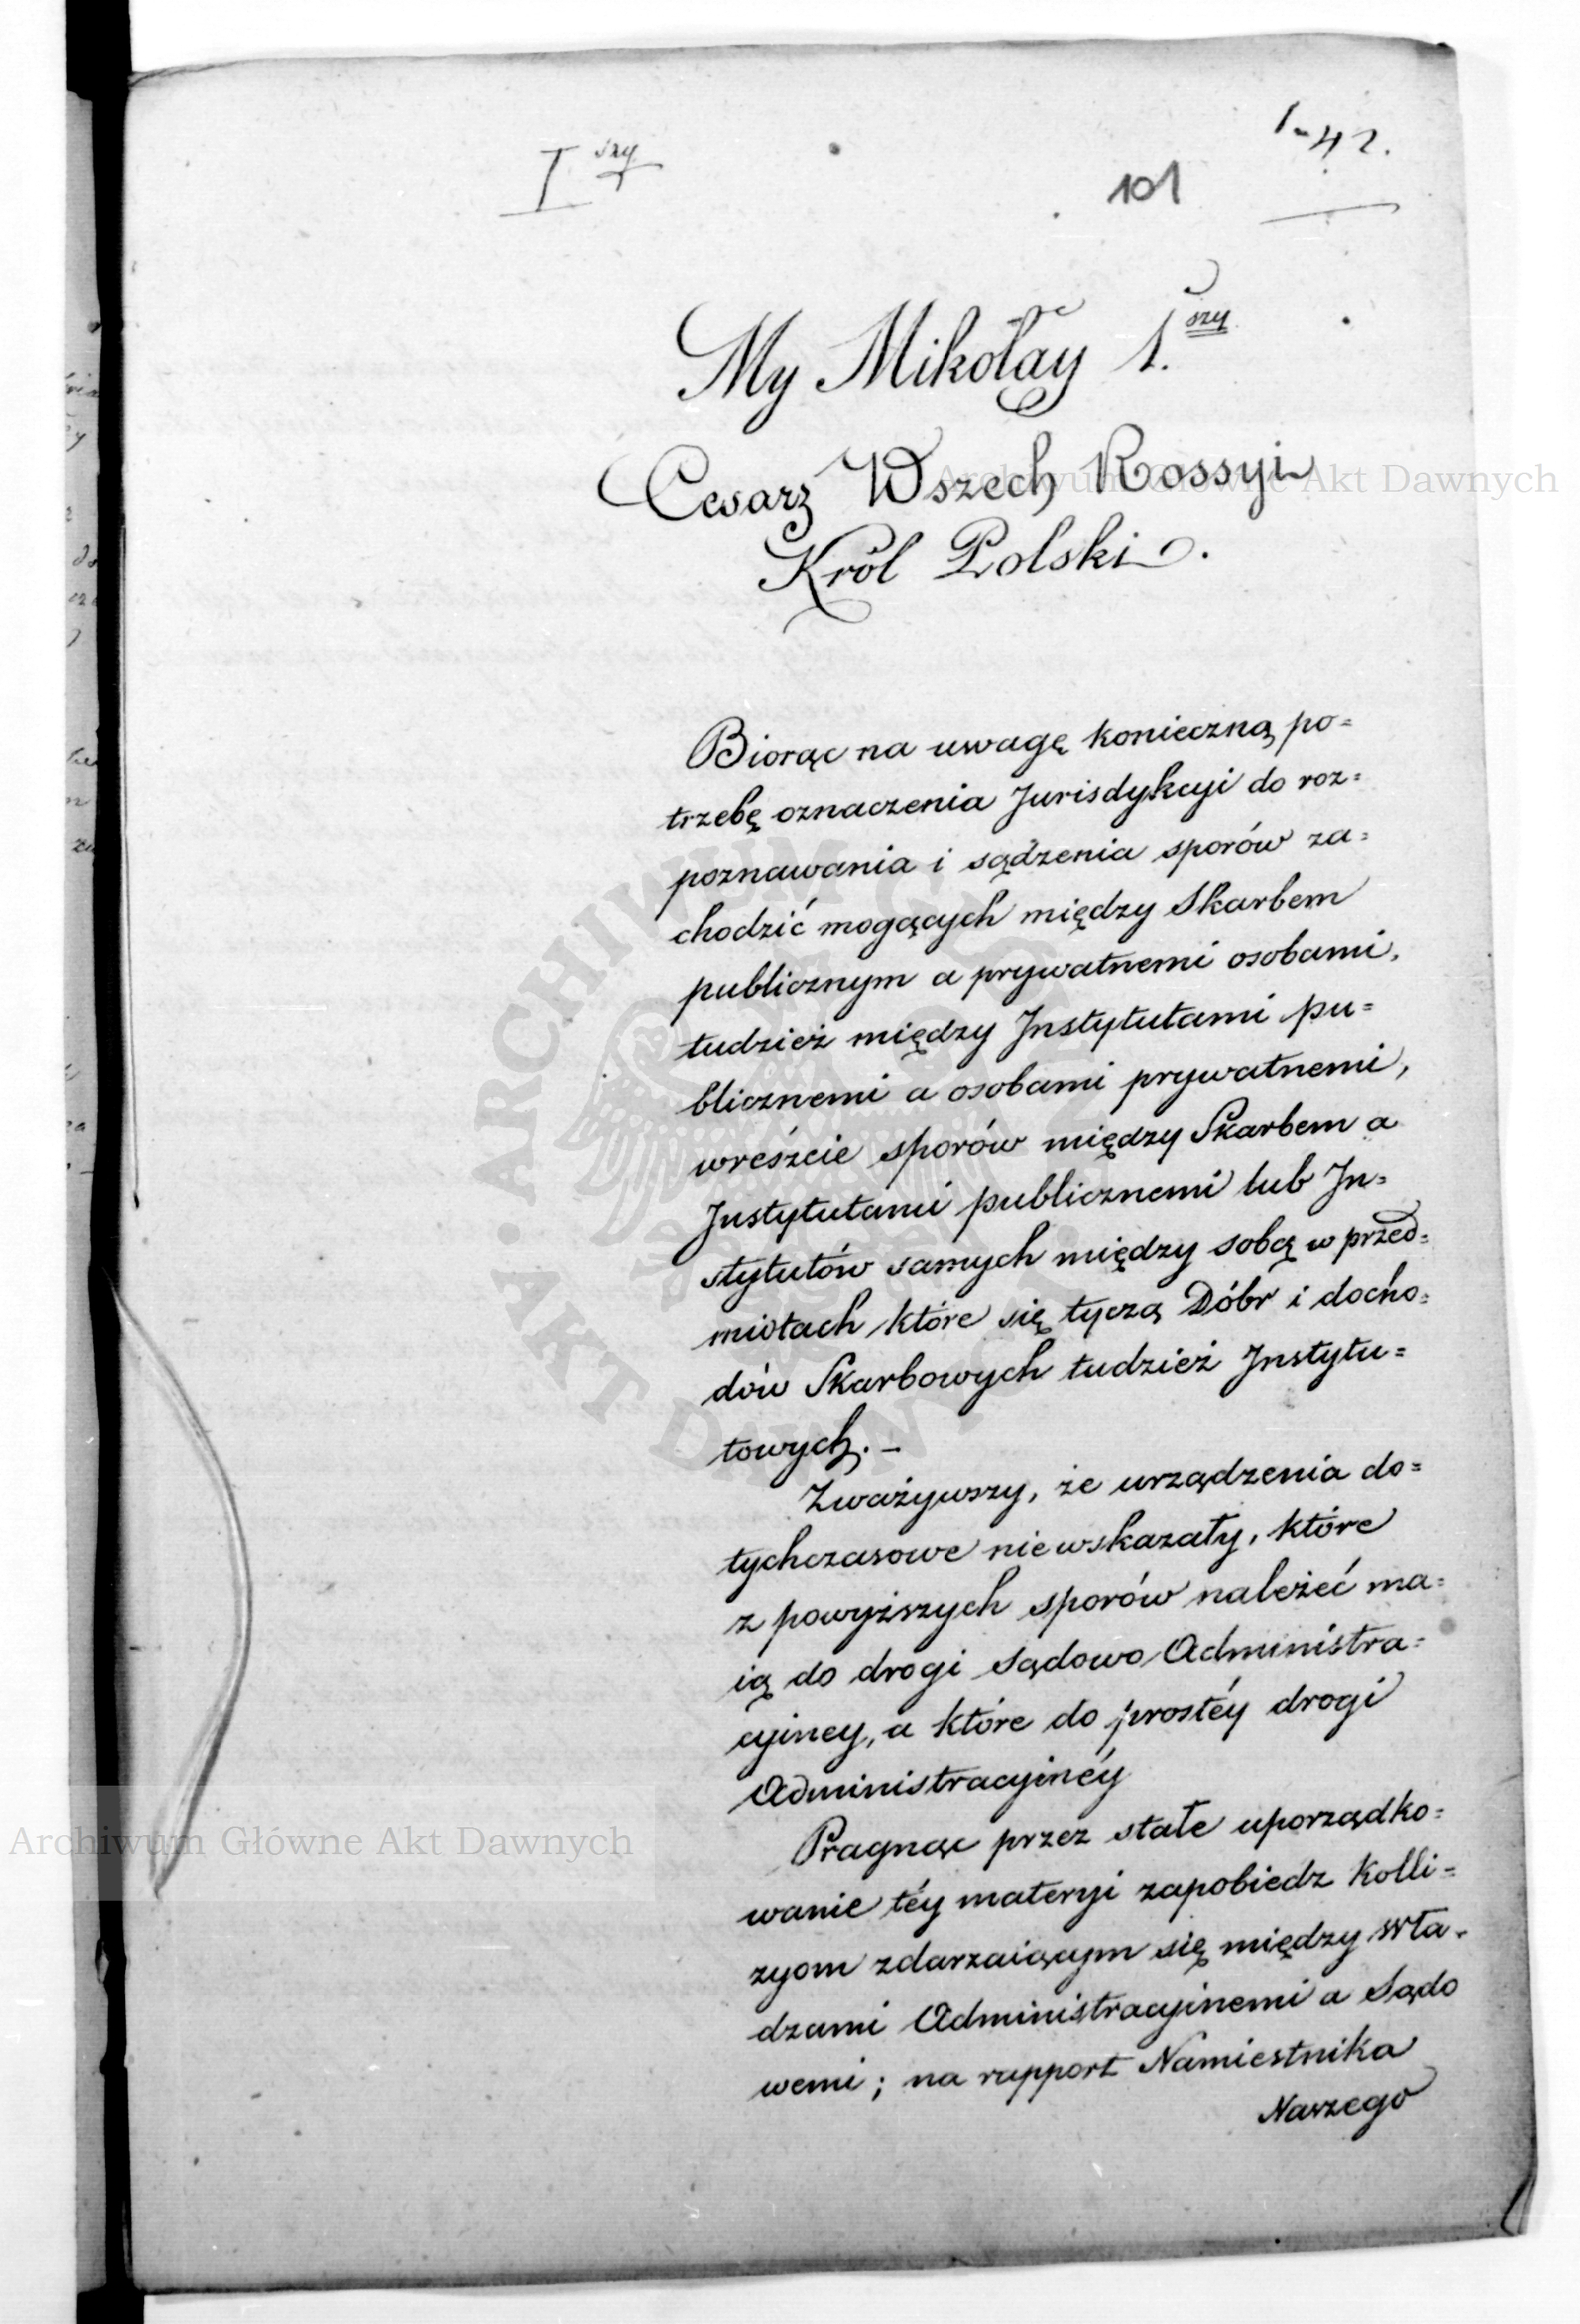 I szy
1-42.
101
My Mikołay 1. szy
Cesarz Wszech Rossyi
Król Polski.
Biorąc na uwagę konieczną po=
trzebę oznaczenia Jurisdykcyi do roz=
poznawania i sądzenia sporów za=
chodzić mogących między Skarbem
publicznym a prywatnemi osobami,
tudzież między Instytutami pu=
blicznemi a osobami prywatnemi,
wreśzcie sporów między Skarbem a
Instytutami publicznemi lub In=
stytutów samych między sobą w przed=
miotach które się tyczą Dóbr i docho=
dów Skarbowych tudzież Instytu=
towych. –
Zważywszy, że urządzenia do=
tychczasowe niewskazały, które
z powyższych sporów należeć ma=
ią do drogi Sądowo Administra=
cyiney, a które do prostéy drogi
Administracyinéy
Pragnąc przez stałe uporządko=
wanie téy materyi zapobiedz Kolli=
zyom zdarzaiącym się między Wła=
dzami Administracyinemi a Sądo
wemi; na rapport Namiestnika
Naszego
Archiwum Główne Akt Dawnych
Archiwum Główne Akt Dawnych
ARCHIWUM GŁÓWNE AKT DAWNYCH